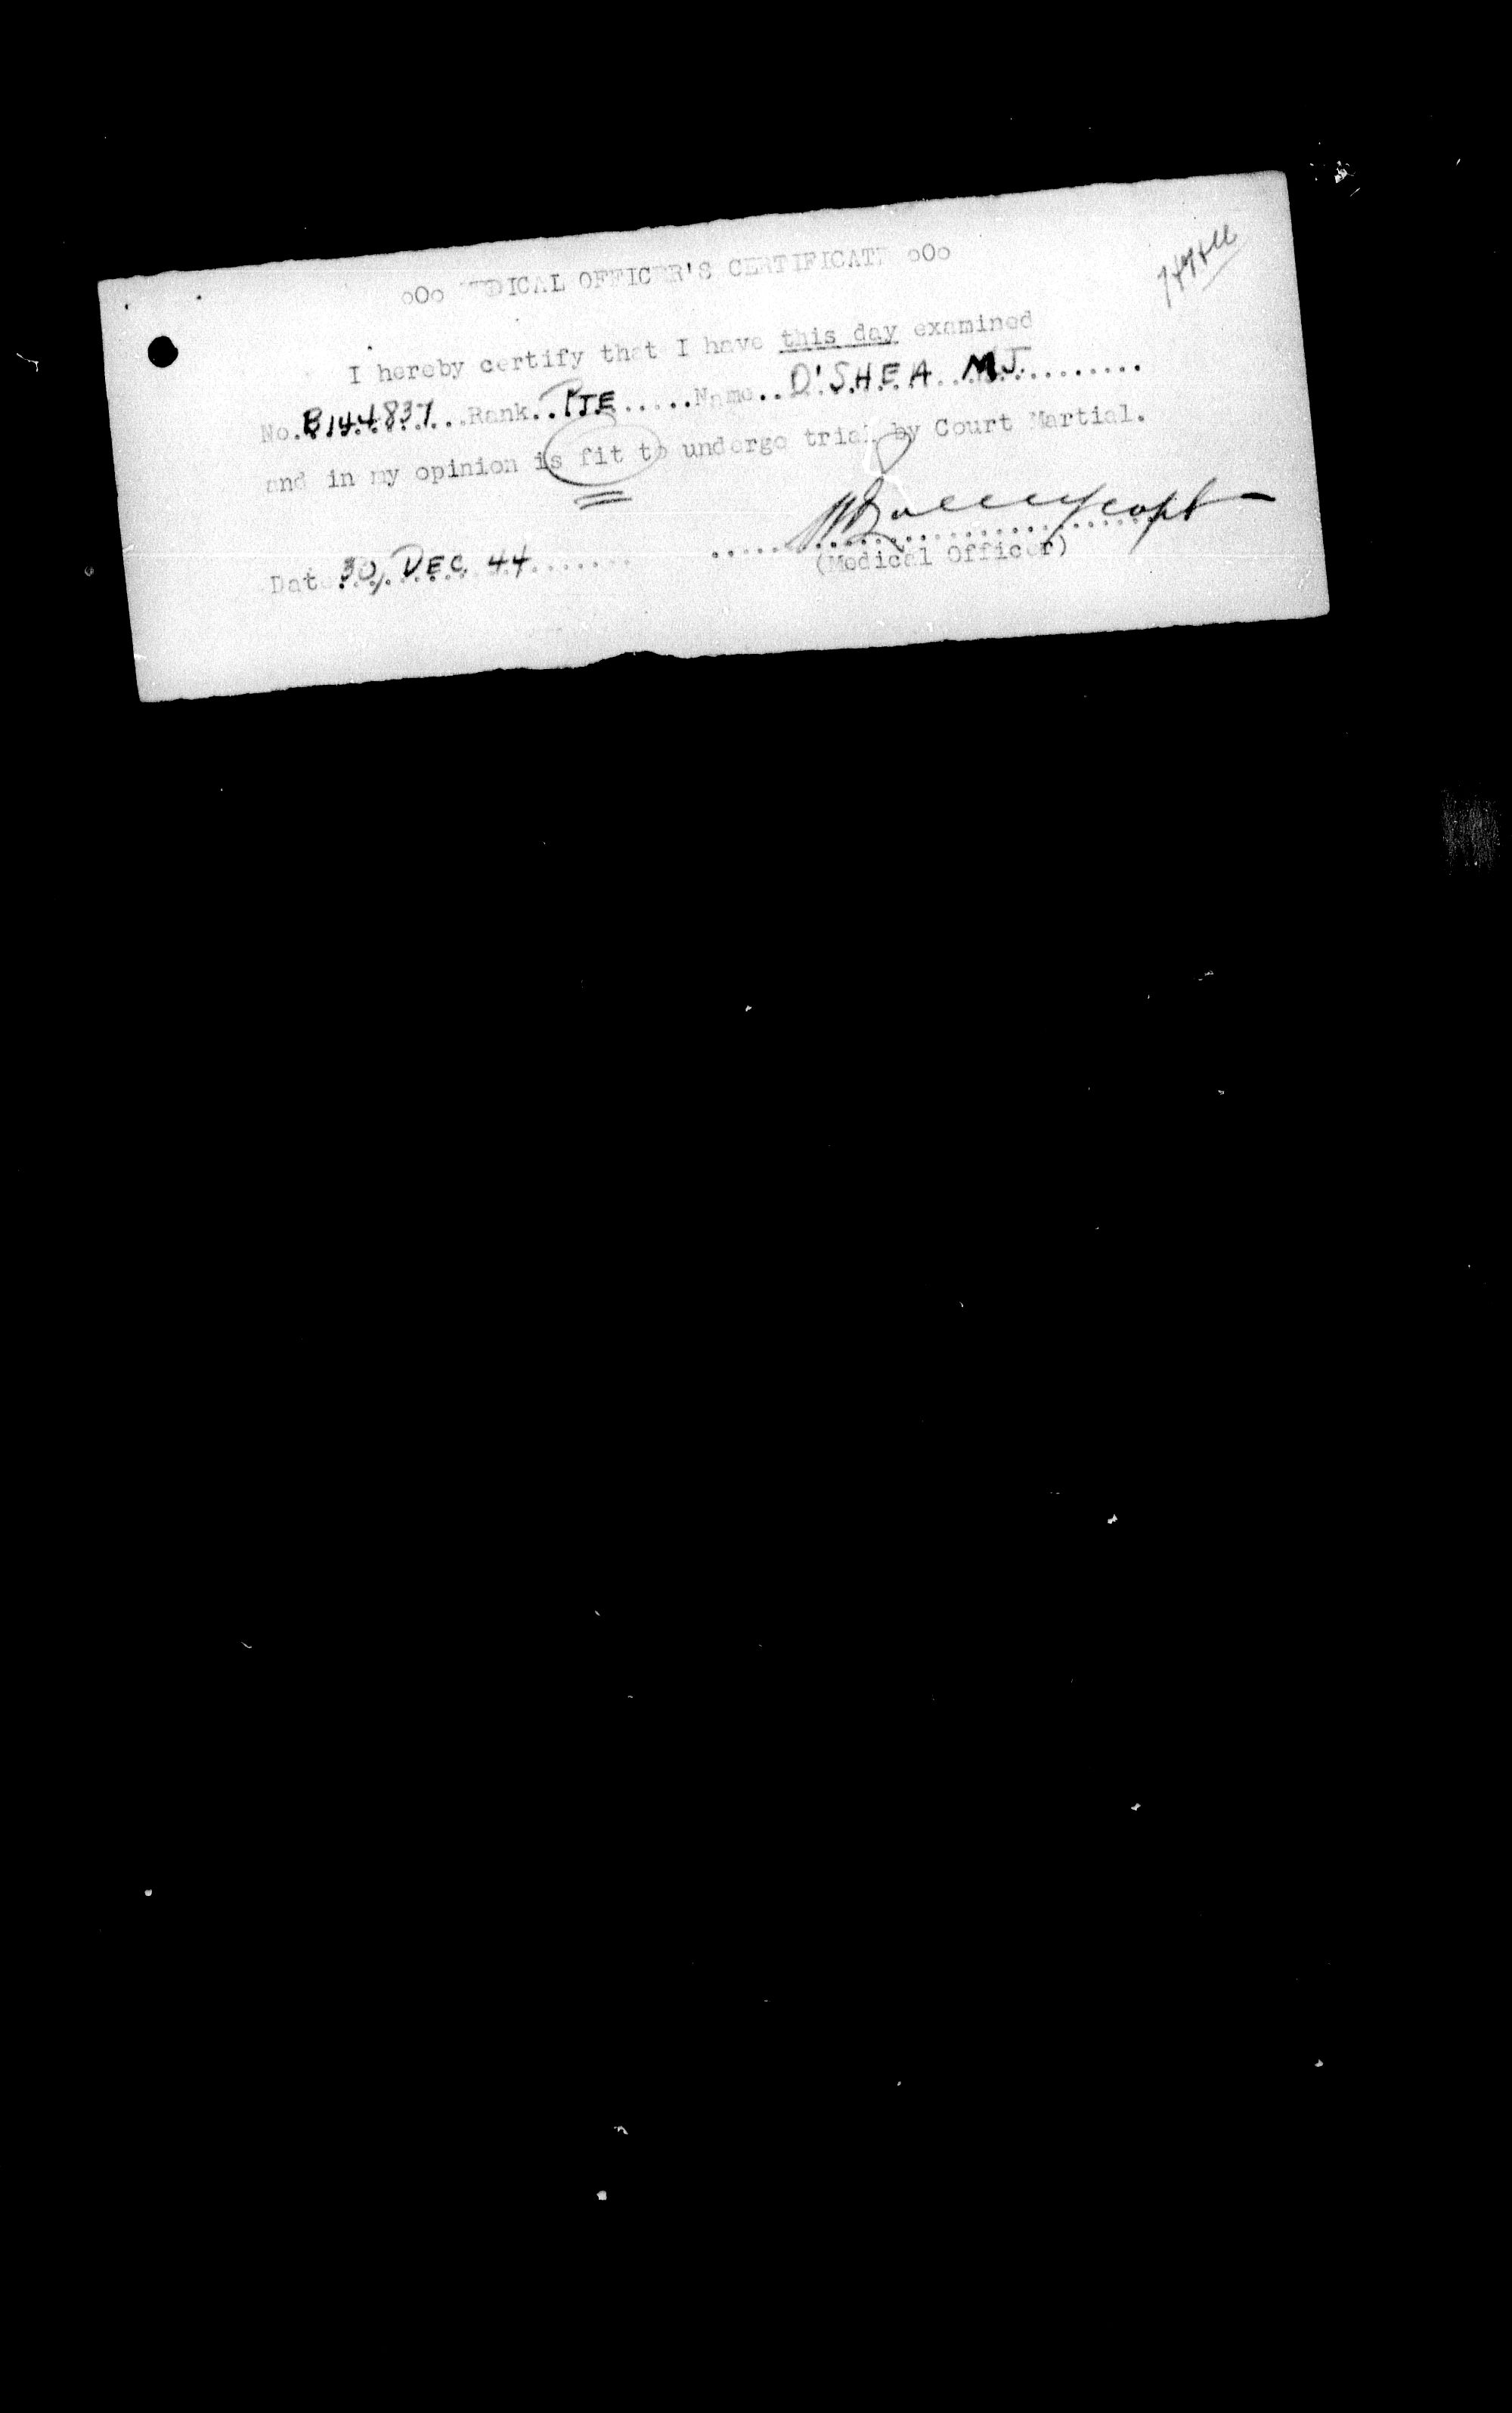 oOo MEDICAL OFFICER'S CERTIFICATE oOo
I hereby certify that I have this day examined
No.B144837...Rank..PTE.....Name..O'SHEA MJ..........
and in my opinion is fit to undergo trial by Court Martial.
Date 30, DEC. 44........
(Medical Officer)